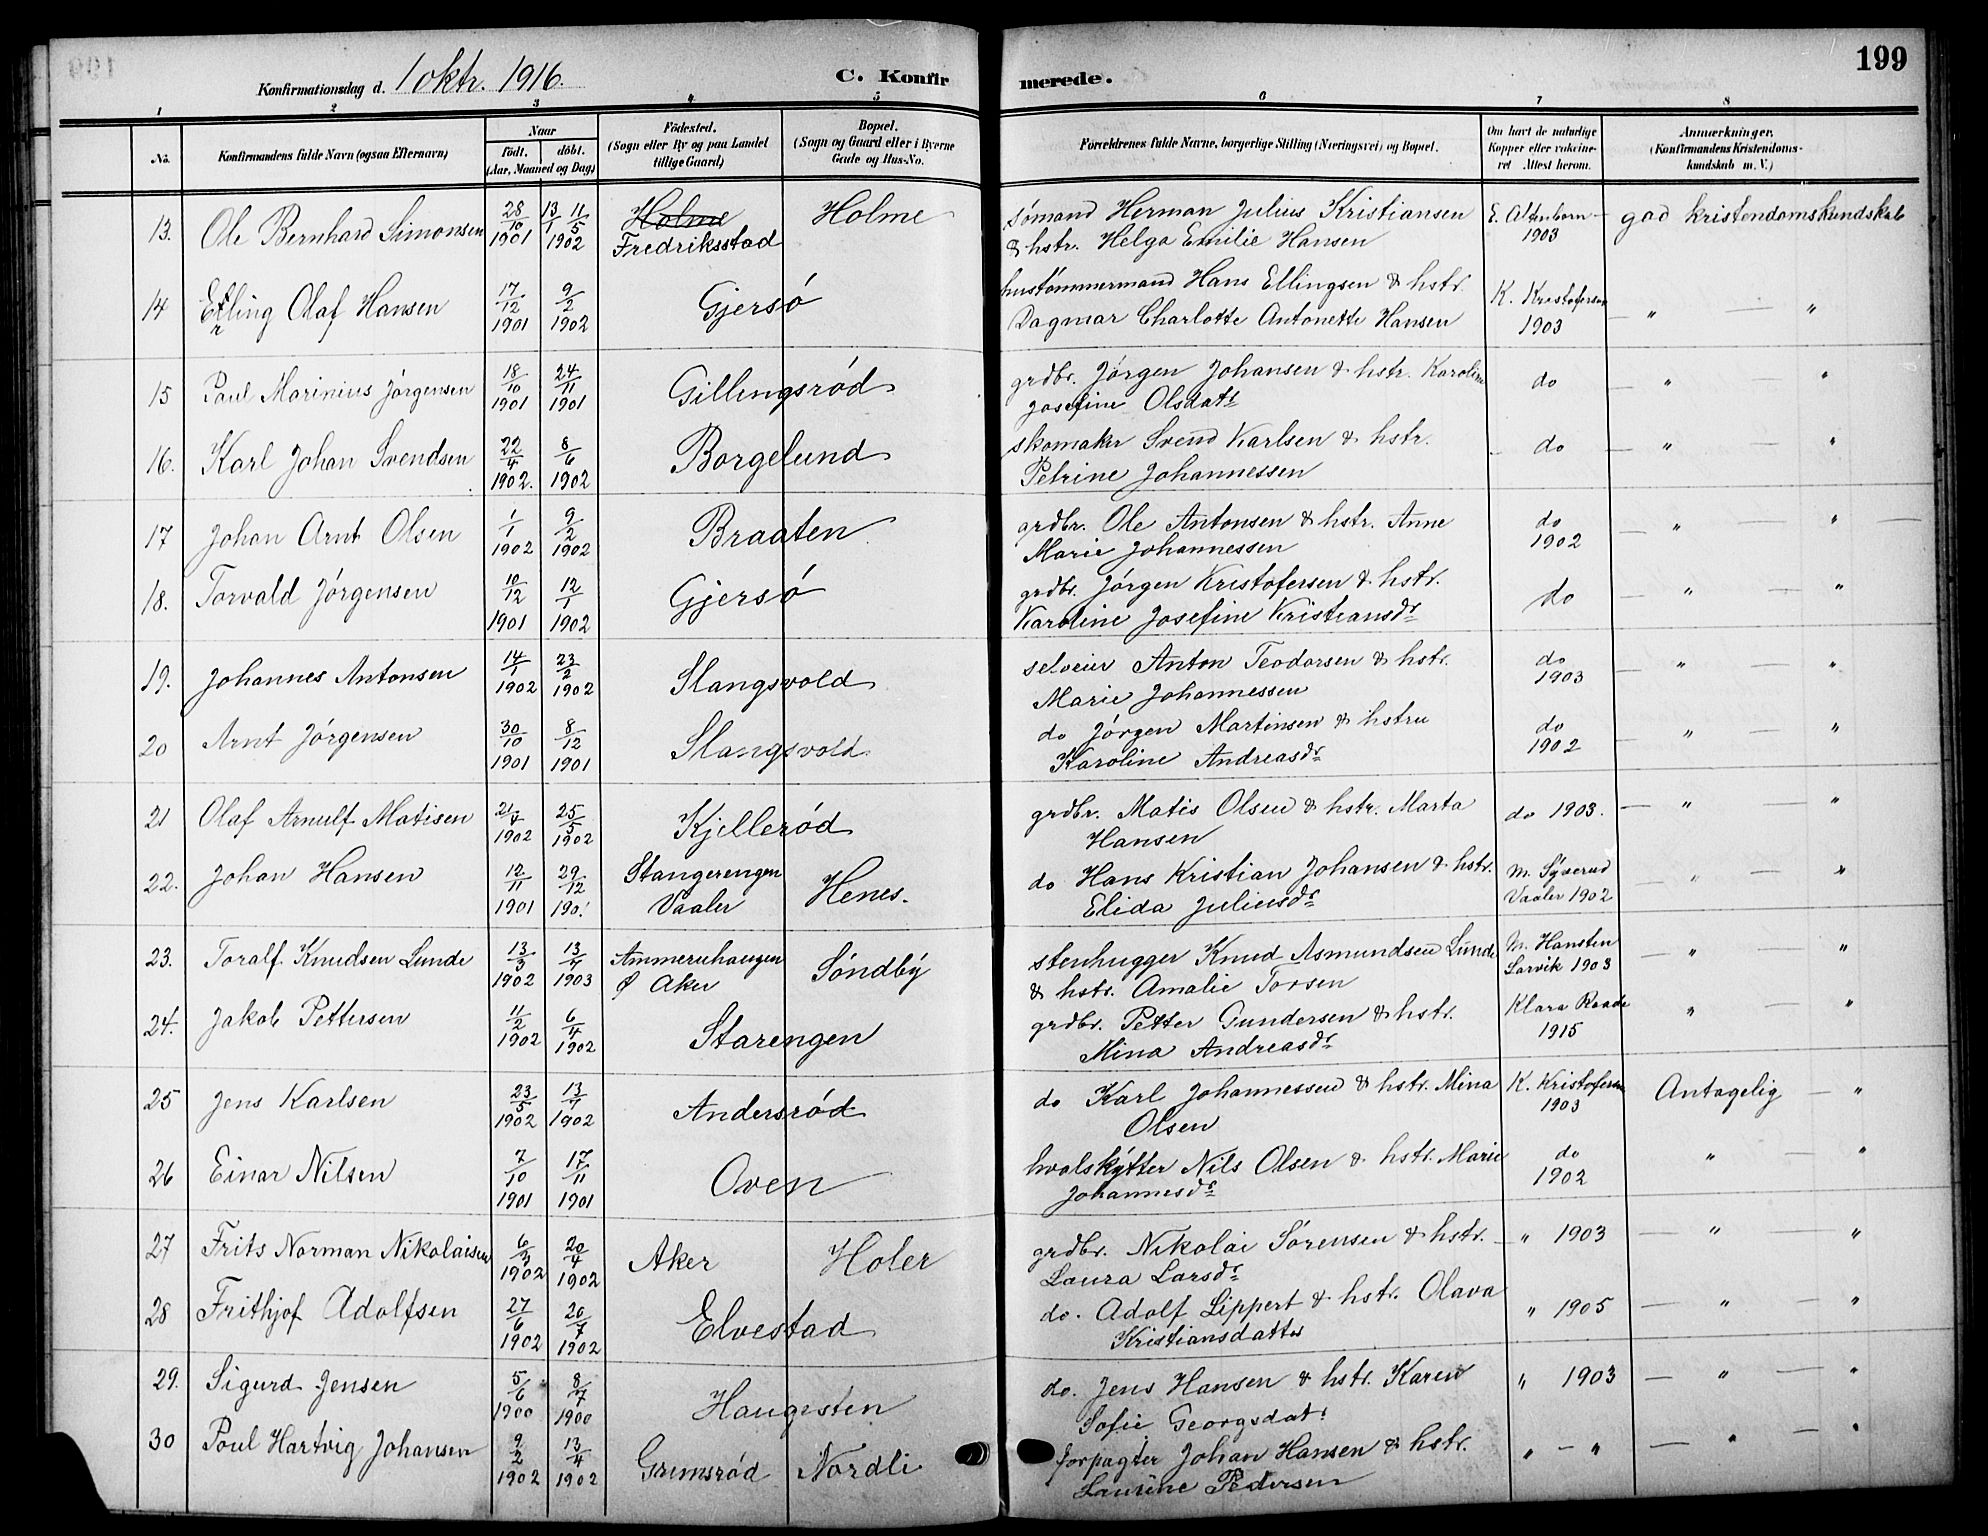 199
Konfirmationsdag d. 1 oktr. 1916.
C. Konfirmerede.
1 2 3 4 5 6 7 8
No. Konfirmandens fulde Navn (ogsaa Efternavn) Naar født. døbt. (Aar, Maaned og Dag) Fødested. (Sogn eller By og paa Landet tillige Gaard) Bopæl. (Sogn og Gaard eller i Byerne Gade og Hus-No. Forældrenes fulde Navne, borgerlige Stilling (Næringsvei) og Bopæl. Om havt de naturlige Kopper eller vaccineret Attest herom. Anmærkninger. (Konfirmandens Kristendomskundskab m. V.)
13. Ole Bernhard Simonsen 28/10 1901 13/1 11/5 1902 Holme Fredriksstad Holme sømand Herman Julius Kristiansen & hstr. Helga Emilie Hansen E. Altenborn 1903 god kristendomskundskab
14 Erling Olaf Hansen 17/12 1901 9/2 1902 Gjersø hustømmermand Hans Ellingsen & hstr. Dagmar Charlotte Antonette Hansen K. Kristofersen 1903 — " — "
15 Paul Marinius Jørgensen 18/10 1901 24/11 1901 Gillingsrød grdbr. Jørgen Johansen & hstr. Karoline Josefine Olsdatr do — " "
16. Karl Johan Svendsen 22/4 1902. 8/6 1902 Borgelund skomaker Svend Karlsen & hstr. Petrine Johannessen do — " — "
17 Johan Arnt Olsen 1/1 1902 9/2 1902 Braaten grdbr. Ole Antonsen & hstr. Anne Marie Johannessen do 1902 — " " —
18. Torvald Jørgensen 10/12 1901 12/1 1902 Gjersø grdbr. Jørgen Kristofersen & hstr. Karoline Josefine Kristiansdr do — " — "
19. Johannes Antonsen 14/1 1902 23/2 1902 Slangsvold selveier Anton Teodorsen & hstr. Marie Johannessen do 1903 — " — "
20 Arnt Jørgensen 30/10 1901 8/12 1901 Slangsvold do Jørgen Martinsen & hstru Karoline Andreasdr do 1902 — " — "
21 Olaf Arnulf Matisen 21/4 1902 25/5 1902 Kjellerød grdbr. Matis Olsen & hstr. Marta Hansen do 1903. — " — "
22. Johan Hansen 12/11 1901 29/12 190! Stangerengen Vaaler Henes. do Hans Kristian Johansen & hstr. Elida Juliusdr M. Syverud Vaaler 1902 — " — "
23. Toralf Knudsen Lunde 13/3 1902 13/7 1903 Ammeruhaugen Ø Aker Søndby stenhugger Knud Asmundsen Lunde & hstr. Amalie Torsen M. Hansten Larvik 1903 — " — "
24. Jakob Pettersen 11/2 1902 6/4 1902 Starengen grdbr. Petter Gundersen & hstr. Mina Andreasdr Klara Raade 1915 " — "
25 Jens Karlsen 23/5 1902 13/7 1902 Andersrød do Karl Johannessen & hstr. Mina Olsen K. Kristofersen 1903 Antagelig — "
26 Einar Nilsen 7/10 1901 17/11 1901 Oven hvalskytter Nils Olsen & hstr. Marie Johannesdr do 1902 " — "
27 Frits Norman Nikolaisen 6/3 1902 20/4 1902 Aker Holer grdbr. Nikolai Sørensen & hstr. Laura Larsdr " 1903 — " — "
28 Frithjof Adolfsen 27/6 1902 20/7 1902 Elvestad do. Adolf Lippert & hstr. Olava Kristiansdatter " 1905 — " — "
29. Sigurd Jensen 5/6 1900 8/7 1900 Haugesten do. Jens Hansen & hstr. Karen Sofie Georgsdatr " 1903 — " — "
30 Poul Hartvig Johansen 9/2 1902 13/4 1902 Grimsrød Nordli forpagter Johan Hansen & hstr. Laurine Pedersen " — " — " — "